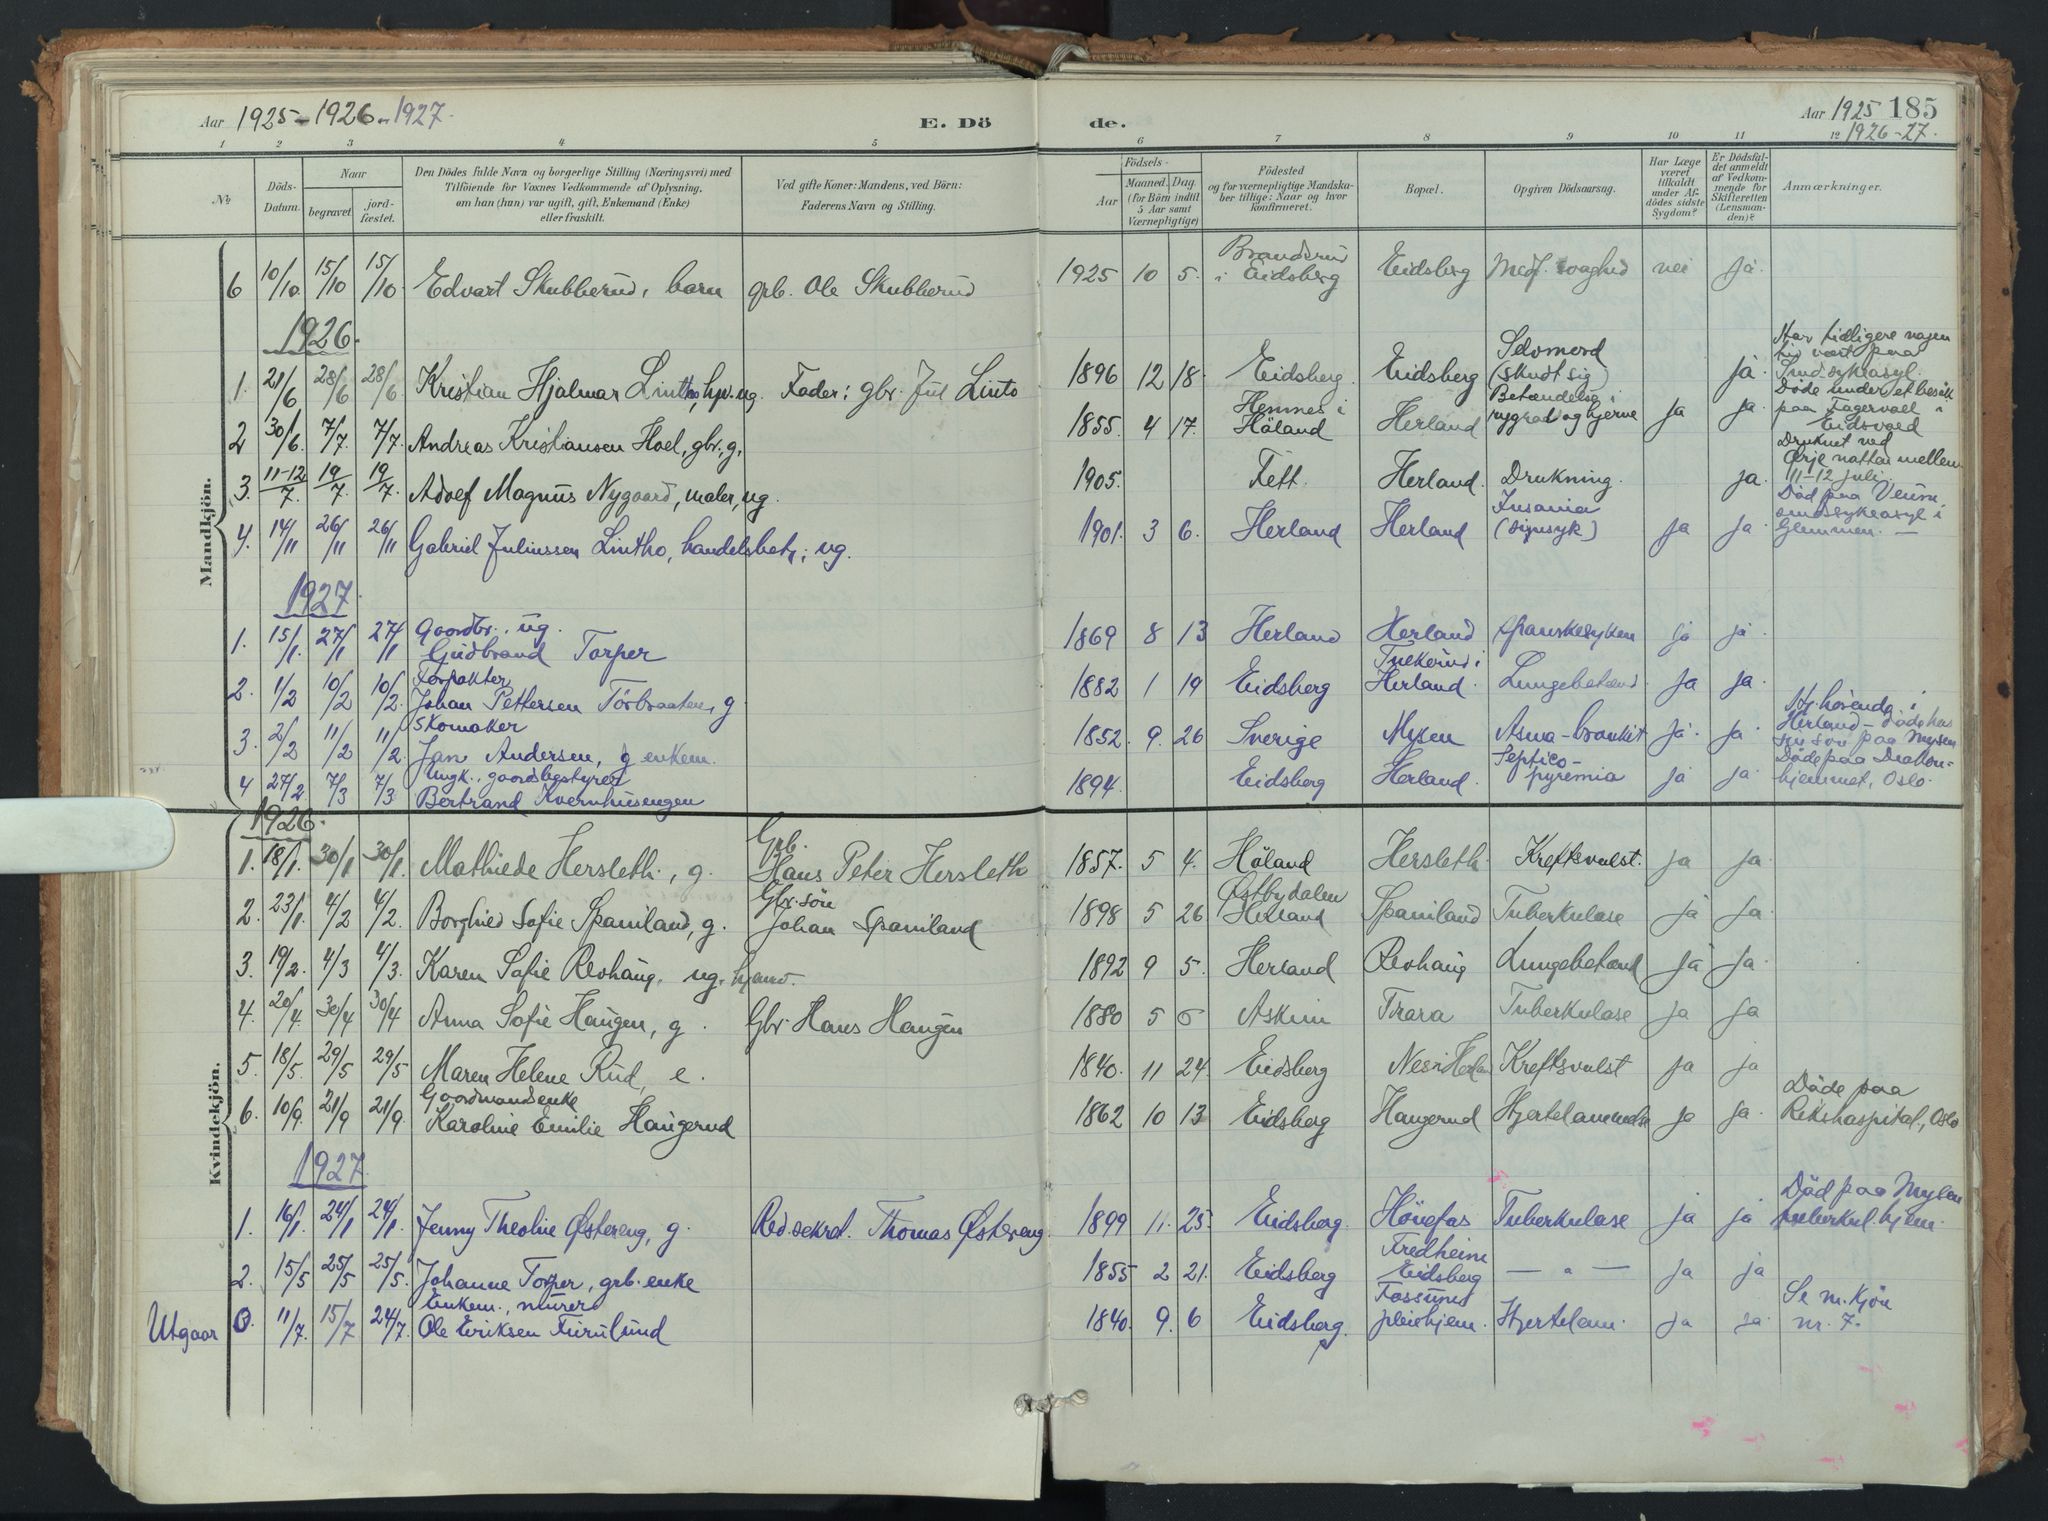 Aar 1925 - 1926 - 1927.
E. Dö
de.
Aar 1925 185
1926-27.
1 2 3 4 5 6 7 8 9 10 11 12
№
Döds-
Datum.
Naar
begravet.
jord-
fæstet.
Den Dödes fulde Navn og borgerlige Stilling (Næringsvei) med
Tilföiende for Voxnes Vedkommende af Oplysning,
om han (hun) var ugift, gift, Enkemand (Enke)
eller fraskilt.
Ved gifte Koner: Mandens, ved Börn:
Faderens Navn og Stilling.
Födsels-
Aar
Maaned. Dag
(for Börn indtil
5 Aar samt
Værnepligtige)
Födested
og for værnepligtige Mandska-
ber tillige: Naar og hvor
konfirmeret.
Bopæl.
Opgiven Dödsaarsag.
Har Læge
været
tilkaldt
under Af-
dödes sidste
Sygdom?
Er Dödsfal-
det anmeldt
af Vedkom-
mende for
Skifteretten
(Lensman-
den)?
Anmærkninger.
Mandkjön.
6 10/10 15/10 15/10 Edvart Skubberud, barn grb. Ole Skubberud 1925 10 5. Brandsrud i Eidsberg Eidsberg Medf. svaghed nei ja.
1926.
1. 21/6 28/6 28/6 Kristian Hjalmar Lintho, ug. Fader: gbr. Jul Linto 1896 12 18. Eidsberg. Eidsberg Selvmord (skudt sig) ja. Har tidligere paa Sindsykeasyl.
2 30/6. 7/7. 7/7. Andreas Kristiansen Hoel, gbr, g. 1855. 4 17. Hemnes i Höland Herland Betændelse i rygrad og hjerne ja ja. Döde under et besök paa Fagervoll i Eidsvold
3. 11-12/7. 19/7. 19/7 Adolf Magnus Nygaard, maler, ug. 1905. Fett. Herland. Drukning. ja. Druknet ved Ørje natten mellem 11-12 juli.
4. 14/11 26/11 26/11 Gabriel Juliussen Lintho, handelsbetj. ug. 1901. 3 6. Herland Herland Insania (sinnsyk) ja ja. Död paa Veum sindsykeasyl i Glemmen. —
1927
1. 15/1. 27/1 27/1 Gaardbr., ug. Gudbrand Torper 1869 8 13 Herland Herland spanskesyken ja ja.
2. 1/2 10/2 10/2. Forpakter Johan Pettersen Torbraaten, g 1882 1 19 Eidsberg i Herland. Lungebetænd. ja ja.
3. 2/2 11/2 11/2. Skomaker Jan Andersen, g enkem. 1852. 9. 26 Sverige Mysen Asma-bronkit ja. ja. Hj.hörende i Herland - döde hos sin sön paa Mysen
4 27/2. 7/3 7/3 Ungk., gaardsbestyrer Bertrand Kvernhusengen 1894. Eidsberg Herland. Septico-pyremia ja ja. Döde paa Diakonhjemmet, Oslo.
Kvindekjön.
1926.
1. 18/1. 30/1 30/1. Mathilde Hersleth., g. Grb. Hans Peter Hersleth 1857. 5 4. Höland Hersleth. Kreftsvulst. ja ja.
2. 23/1. 4/2 4/2. Borghild Sofie Spaniland, g. Gbr.sön Johan Spaniland 1898 5 26 Østbydalen Herland Spaniland Tuberkulose ja ja.
3. 19/2. 4/3 4/3. Karen Sofie Revhaug. ug. hjemv. 1892 9 5. Herland Revhaug Lungebetænd ja ja.
4. 20/4 30/4 30/4 Anna Sofie Haugen, g. Gbr. Hans Haugen 1880 5 Askim Trara Tuberkulose ja ja
5. 18/5. 29/5 29/5 Maren Helene Rud, e. 1840. 11 24. Eidsberg Nes i Herland Kreftsvulst ja ja
6. 10/9. 21/9 21/9. Gaardmandsenke Karoline Emilie Haugerud 1862 10 13 Eidsberg Haugerud Hjertelammelse ja ja. Döde paa Rikshospital., Oslo
1927
1. 16/1. 24/1 24/1. Jenny Theoline Østereng, g. Red.sekret. Thomas Østereng. 1899 11. 25. Eidsberg. Hönefos Tuberkulose ja ja Död paa Mysen tuberkul.hjem.
2. 15/5 25/5 25/5. Johanne Torper, grb. enke 1855 2 21. Eidsberg Fredheim Eidsberg — " — ja ja
Utgaar 11/7. 15/7 24/7. Enkem., murer Ole Eriksen Furulund 1840. 9. 6 Eidsberg. Fossum pleiehjem. Hjertelam. ja ja. Se m.kjön nr. 7.